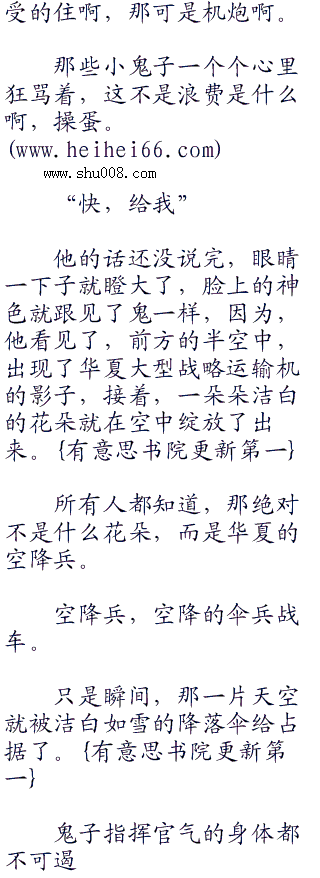 受的住啊，那可是机炮啊。
那些小鬼子一个个心里
狂骂着，这不是浪费是什么
啊，操蛋。
(www.heihei66.com)
www.shu008.com
“快，给我”
他的话还没说完，眼睛
一下子就瞪大了，脸上的神
色就跟见了鬼一样，因为，
他看见了，前方的半空中，
出现了华夏大型战略运输机
的影子，接着，一朵朵洁白
的花朵就在空中绽放了出
来。{有意思书院更新第一}
所有人都知道，那绝对
不是什么花朵，而是华夏的
空降兵。
空降兵，空降的伞兵战
车。
只是瞬间，那一片天空
就被洁白如雪的降落伞给占
据了。{有意思书院更新第
一}
鬼子指挥官气的身体都
不可遏